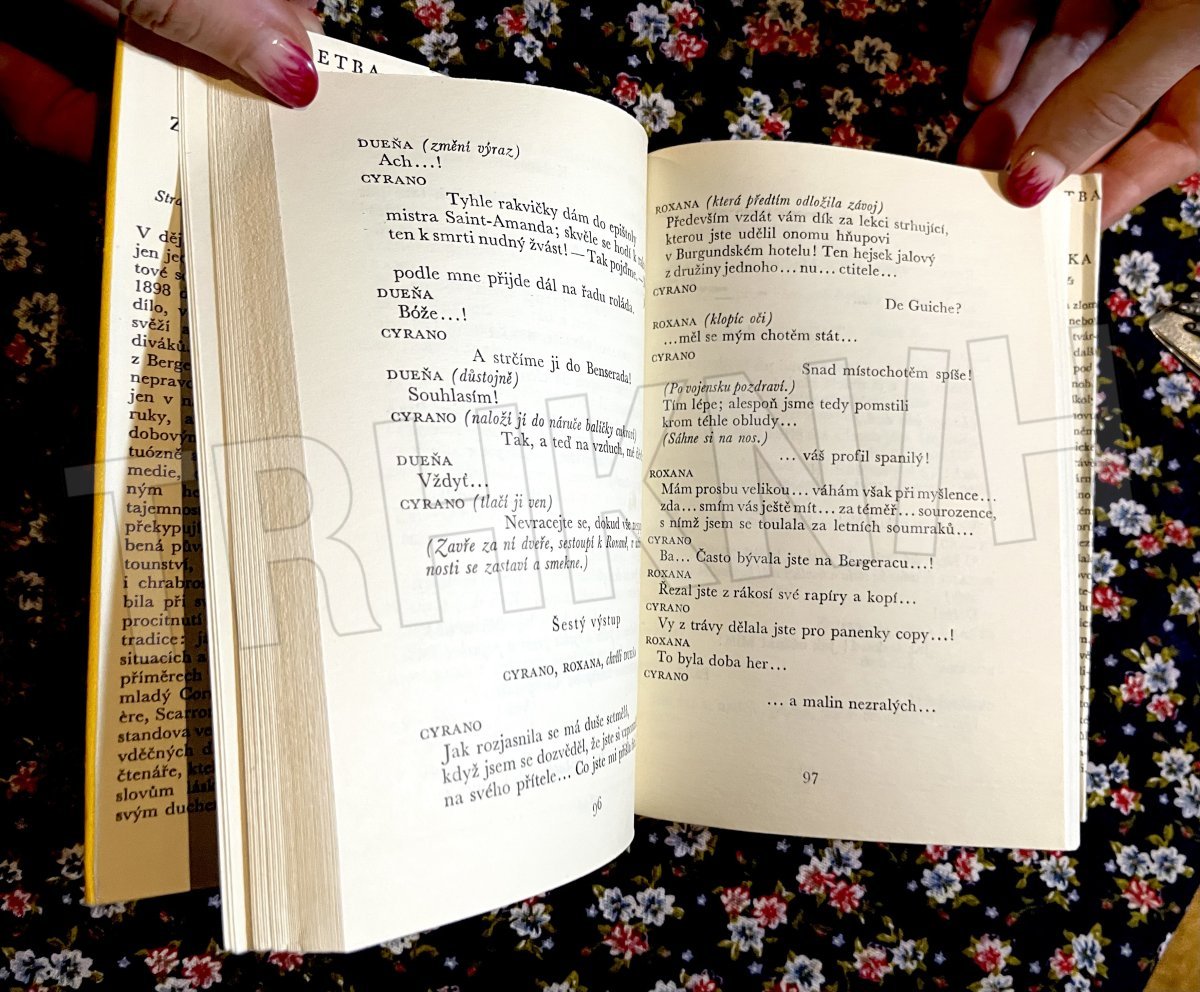 ETBA
Z
V děj
jen jed
tové s
1898
dílo, v
svěží a
diváků
z Berge
nepravd
jen v n
ruky, a
dobovým
tuózně
medie,
ným he
tajemnos
překypují
bená pův
tounství,
i chrabros
bila při s
procitnutí
tradice: j
situacích a
příměrech
mladý Cor
ère, Scarron
standova ve
vděčných d
čtenáře, kte
slovům lásk
svým duche
DUEŇA (změní výraz)
Ach...!
CYRANO
Tyhle rakvičky dám do epištoly
mistra Saint-Amanda; skvěle se hodí k
ten k smrti nudný žvást! — Tak pojďme, —
podle mne přijde dál na řadu roláda.
DUEŇA
Bóže...!
CYRANO
A strčíme ji do Benserada!
DUEŇA (důstojně)
Souhlasím!
CYRANO (naloží jí do náruče balíčky cukroví)
Tak, a teď na vzduch, mé
DUEŇA
Vždyť...
CYRANO (tlačí ji ven)
Nevracejte se, dokud vše
(Zavře za ní dveře, sestoupí k Roxaně, v
nosti se zastaví a smekne.)
Šestý výstup
CYRANO, ROXANA, chvíli DUEŇA
CYRANO
Jak rozjasnila se má duše setmělá,
když jsem se dozvěděl, že jste si vzpomněla
na svého přítele... Co jste mi přišla
96
ROXANA (která předtím odložila závoj)
Především vzdát vám dík za lekci strhující,
kterou jste udělil onomu hňupovi
v Burgundském hotelu! Ten hejsek jalový
z družiny jednoho... nu... ctitele...
CYRANO
De Guiche?
ROXANA (klopíc oči)
...měl se mým chotěm stát...
CYRANO
Snad místochotěm spíše!
(Po vojensku pozdraví.)
Tím lépe; alespoň jsme tedy pomstili
krom téhle obludy...
(Sáhne si na nos.)
... váš profil spanilý!
ROXANA
Mám prosbu velikou... váhám však při myšlence...
zda... smím vás ještě mít... za téměř... sourozence,
s nímž jsem se toulala za letních soumraků...
CYRANO
Ba... Často bývala jste na Bergeracu...!
ROXANA
Řezal jste z rákosí své rapíry a kopí...
CYRANO
Vy z trávy dělala jste pro panenky copy...!
ROXANA
To byla doba her...
CYRANO
... a malin nezralých...
97
TBA
KA
TRHKNIH